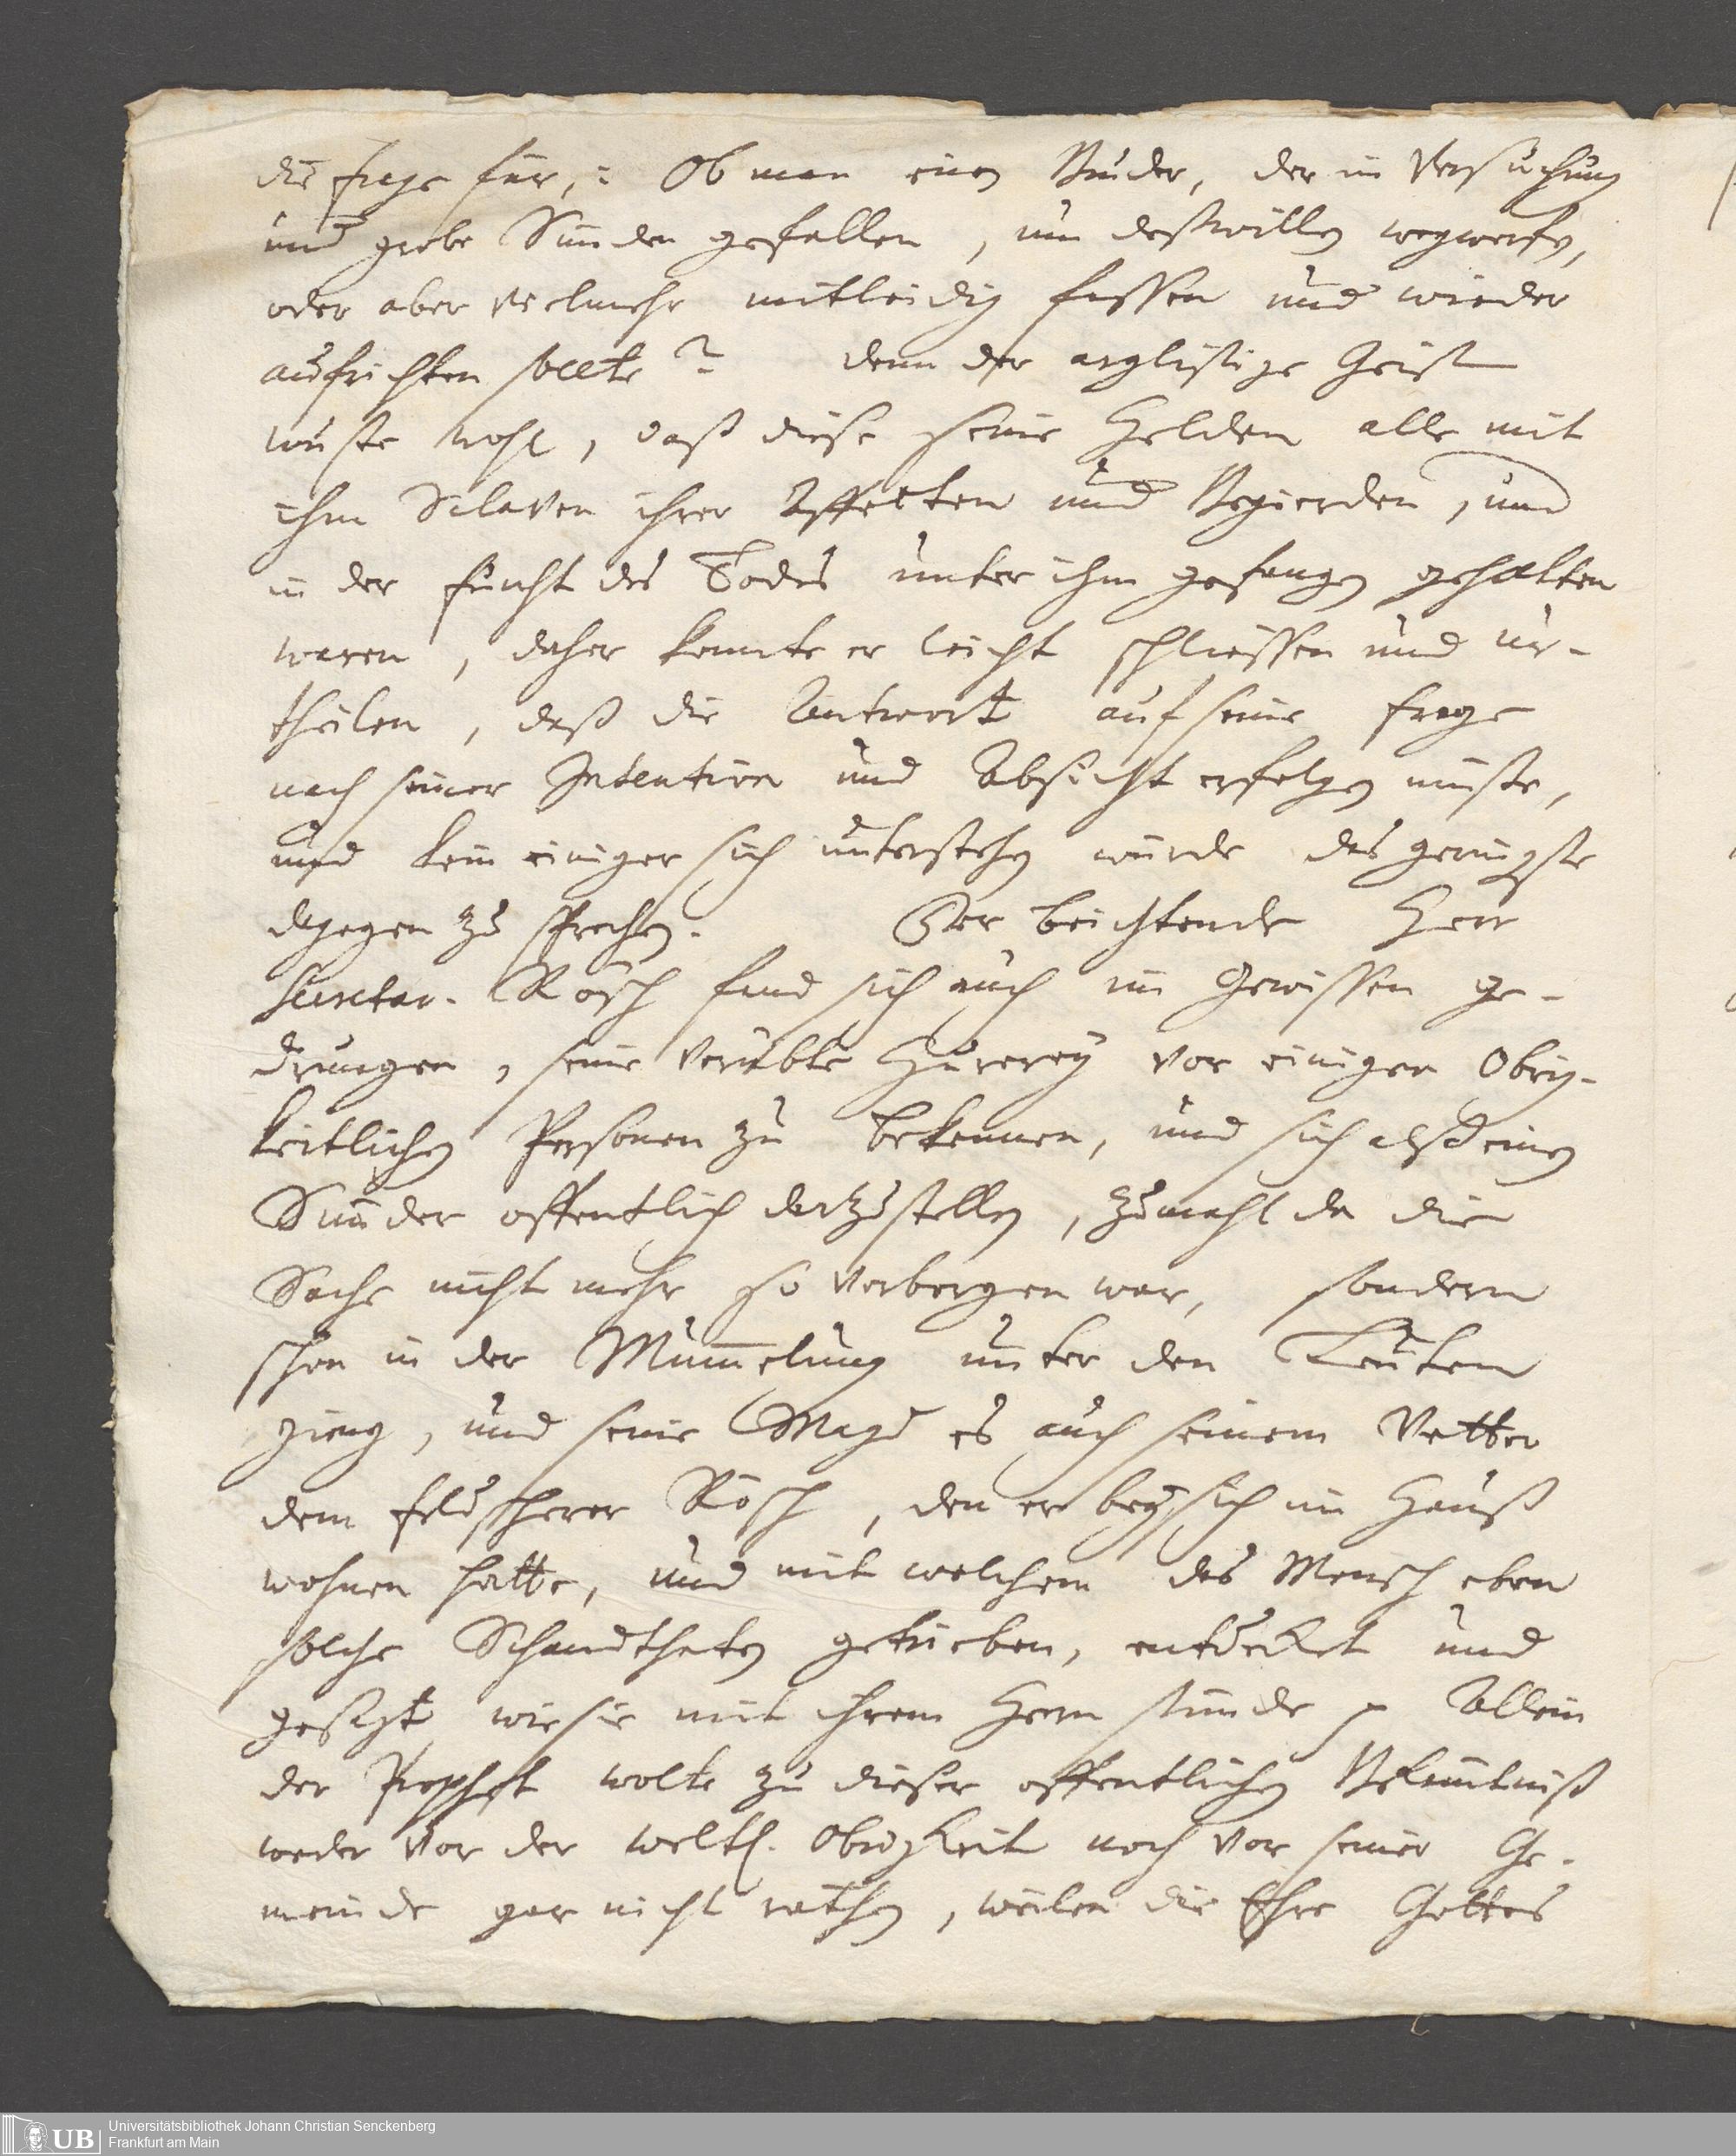 die frage für,: Ob man einen Bruder, der in Versuchung
und grobe Sünden gefallen, um deßwillen wegwerfen,
oder aber vielmehr mitleidig fassen und wieder
aufrichten sollte? denn der arglistige Geist
wuste wohl, daß diese seine Helden alle mit
ihm Sclaven ihrer Affecten und Begierden, und
in der furcht des Todes unter ihm gefangen gehalten
waren, daher konnte er leicht schliessen und ur-
theilen, daß die Antwort auf seine frage
nach seiner Intention und Absicht erfolgen müste,
und kein einiger sich unterstehen würde das geringste
dagegen zu sprechen. Der beichtende Herr
Secretar. Rösch fand sich auch im Gewissen ge-
drungen, seine verübte Hurerey vor einigen Obrig-
keitlichen Personen zu bekennen, und sich als einen
Sünder offentlich darzustellen, zumahl da die
Sache nicht mehr so verborgen war, sondern
schon in der Mummelung unter den Leuten
gieng, und seine Magd es auch seinem Vetter
dem feldscherer Rösch, den er bey sich im Hauß
wohnen hatte, und mit welchem das Mensch eben
solche Schandthaten getrieben, entdecket und
gesagt, wie sie mit ihrem Herrn stünde. Allein
der Prophet wolte zu dieser offentlichen Bekäntniß
weder vor der weltl. Obrigkeit noch vor seiner Ge-
meinde gar nicht rathen, weilen die Ehre Gottes
Universitätsbibliothek Johann Christian Senckenberg
Frankfurt am Main
UB